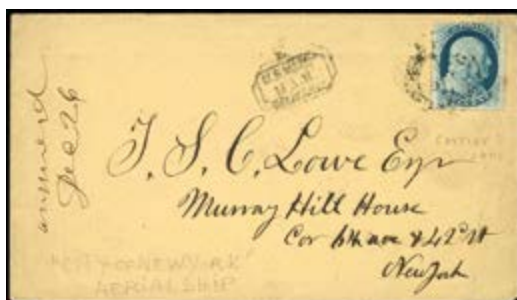 answered
Dec 26
U.S. MAIL
T. S. C. Lowe Esqr
Murray Hill House
Cor 6th ave & 42d St
New York
"CITY OF NEW YORK"
AERIAL SHIP